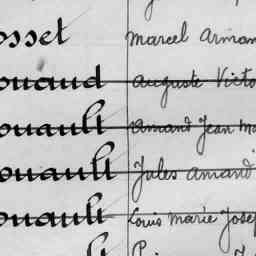 osset Marcel Arman
ouaud Auguste Victo
ouault Amand Jean Ma
ouault Jules Amand
ouault Louis Marie Josep